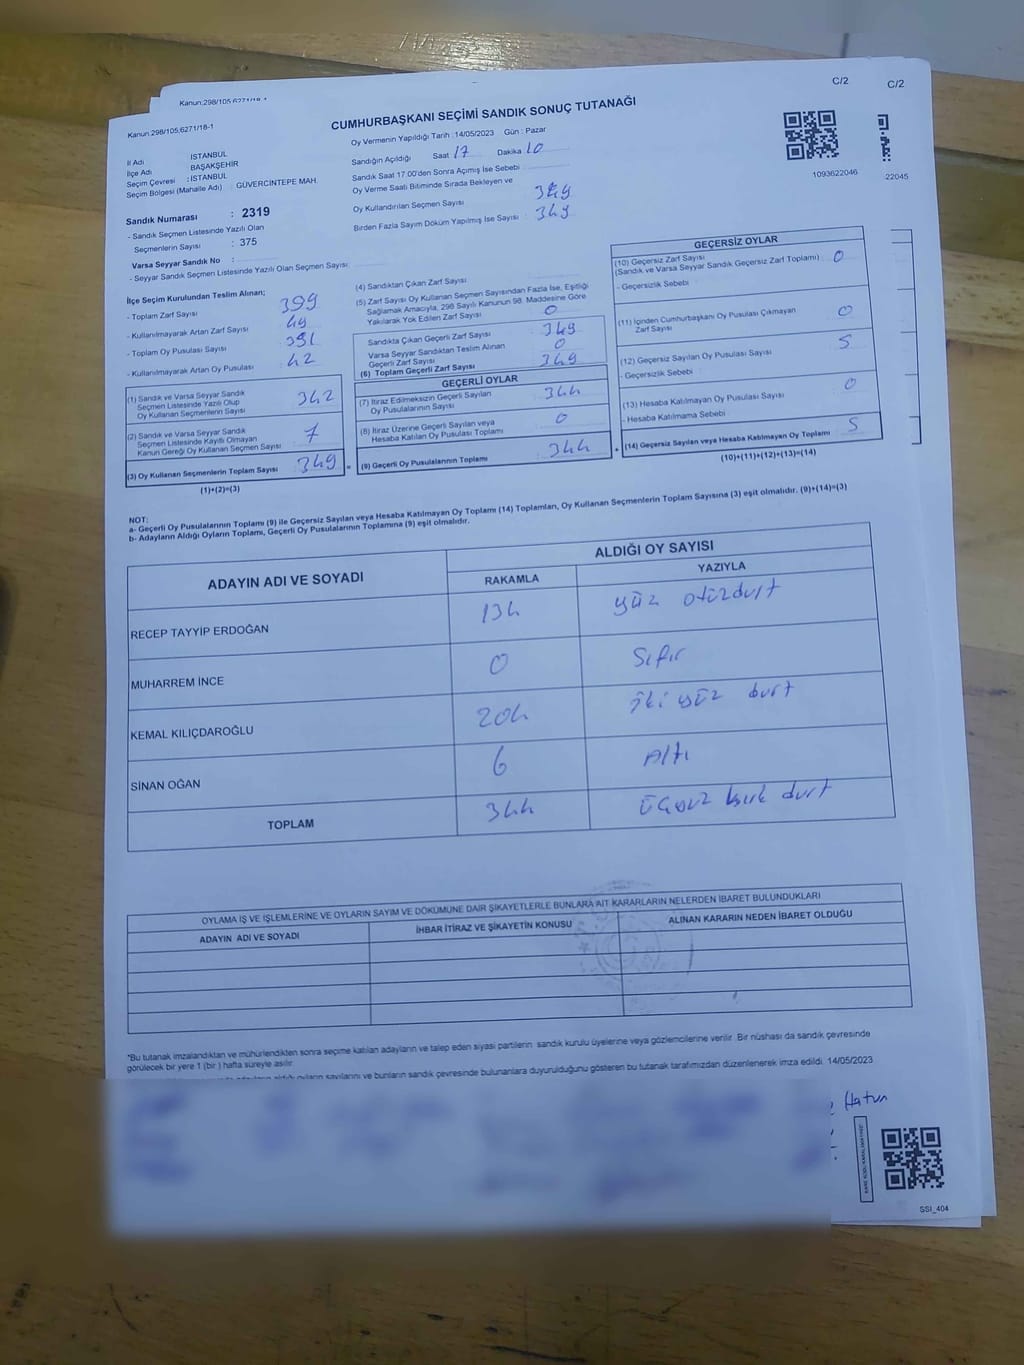 Kanun:298/105;6271/18-1
C/2
C/2
Kanun:298/105;6271/18-1
CUMHURBAŞKANI SEÇİMİ SANDIK SONUÇ TUTANAĞI
Oy Vermenin Yapıldığı Tarih : 14/05/2023 Gün : Pazar
İl Adı : İSTANBUL
İlçe Adı : BAŞAKŞEHİR
Seçim Çevresi : İSTANBUL
Seçim Bölgesi (Mahalle Adı) : GÜVERCİNTEPE MAH.
Sandığın Açıldığı Saat 17 Dakika 10
Sandık Saat 17.00'den Sonra Açımış İse Sebebi
Oy Verme Saati Bitiminde Sırada Bekleyen ve
Oy Kullandırılan Seçmen Sayısı 349
Birden Fazla Sayım Döküm Yapılmış İse Sayısı : 349
1093622046
22045
Sandık Numarası : 2319
- Sandık Seçmen Listesinde Yazılı Olan
Seçmenlerin Sayısı : 375
Varsa Seyyar Sandık No :
- Seyyar Sandık Seçmen Listesinde Yazılı Olan Seçmen Sayısı:
İlçe Seçim Kurulundan Teslim Alınan;
- Toplam Zarf Sayısı 399
- Kullanılmayarak Artan Zarf Sayısı 49
- Toplam Oy Pusulası Sayısı 391
- Kullanılmayarak Artan Oy Pusulası 42
(1) Sandık ve Varsa Seyyar Sandık
Seçmen Listesinde Yazılı Olup
Oy Kullanan Seçmenlerin Sayısı 342
(2) Sandık ve Varsa Seyyar Sandık
Seçmen Listesinde Kayıtlı Olmayan
Kanun Gereği Oy Kullanan Seçmen Sayısı 7
(3) Oy Kullanan Seçmenlerin Toplam Sayısı 349 =
(1)+(2)=(3)
(4) Sandıktan Çıkan Zarf Sayısı
(5) Zarf Sayısı Oy Kullanan Seçmen Sayısından Fazla İse, Eşitliği
Sağlamak Amacıyla, 298 Sayılı Kanunun 98. Maddesine Göre
Yakılarak Yok Edilen Zarf Sayısı 0
Sandıkta Çıkan Geçerli Zarf Sayısı 349
Varsa Seyyar Sandıktan Teslim Alınan
Geçerli Zarf Sayısı 0
(6) Toplam Geçerli Zarf Sayısı 349
GEÇERLİ OYLAR
(7) İtiraz Edilmeksizin Geçerli Sayılan
Oy Pusulalarının Sayısı 344
(8) İtiraz Üzerine Geçerli Sayılan veya
Hesaba Katılan Oy Pusulası Toplamı 0
(9) Geçerli Oy Pusulalarının Toplamı 344 +
GEÇERSİZ OYLAR
(10) Geçersiz Zarf Sayısı
(Sandık ve Varsa Seyyar Sandık Geçersiz Zarf Toplamı) : 0
- Geçersizlik Sebebi
(11) İçinden Cumhurbaşkanı Oy Pusulası Çıkmayan
Zarf Sayısı 0
(12) Geçersiz Sayılan Oy Pusulası Sayısı 5
- Geçersizlik Sebebi
(13) Hesaba Katılmayan Oy Pusulası Sayısı 0
- Hesaba Katılmama Sebebi
(14) Geçersiz Sayılan veya Hesaba Katılmayan Oy Toplamı 5
(10)+(11)+(12)+(13)=(14)
NOT:
a- Geçerli Oy Pusulalarının Toplamı (9) ile Geçersiz Sayılan veya Hesaba Katılmayan Oy Toplamı (14) Toplamları, Oy Kullanan Seçmenlerin Toplam Sayısına (3) eşit olmalıdır. (9)+(14)=(3)
b- Adayların Aldığı Oyların Toplamı, Geçerli Oy Pusulalarının Toplamına (9) eşit olmalıdır.
ADAYIN ADI VE SOYADI
ALDIĞI OY SAYISI
RAKAMLA YAZIYLA
RECEP TAYYİP ERDOĞAN 134 yüz otuzdurt
MUHARREM İNCE 0 Sıfır
KEMAL KILIÇDAROĞLU 204 iki yüz durt
SİNAN OĞAN 6 Altı
TOPLAM 344 üçyüz kırk durt
OYLAMA İŞ VE İŞLEMLERİNE VE OYLARIN SAYIM VE DÖKÜMÜNE DAİR ŞİKAYETLERLE BUNLARA AİT KARARLARIN NELERDEN İBARET BULUNDUKLARI
ADAYIN ADI VE SOYADI İHBAR İTİRAZ VE ŞİKAYETİN KONUSU ALINAN KARARIN NEDEN İBARET OLDUĞU
*Bu tutanak imzalandıktan ve mühürlendikten sonra seçime katılan adayların ve talep eden siyasi partilerin sandık kurulu üyelerine veya gözlemcilerine verilir. Bir nüshası da sandık çevresinde
görülecek bir yere 1 (bir ) hafta süreyle asılır.
aldığı oyların sayılarını ve bunların sandık çevresinde bulunanlara duyurulduğunu gösteren bu tutanak tarafımızdan düzenlenerek imza edildi. 14/05/2023
Hatun
SSI_404